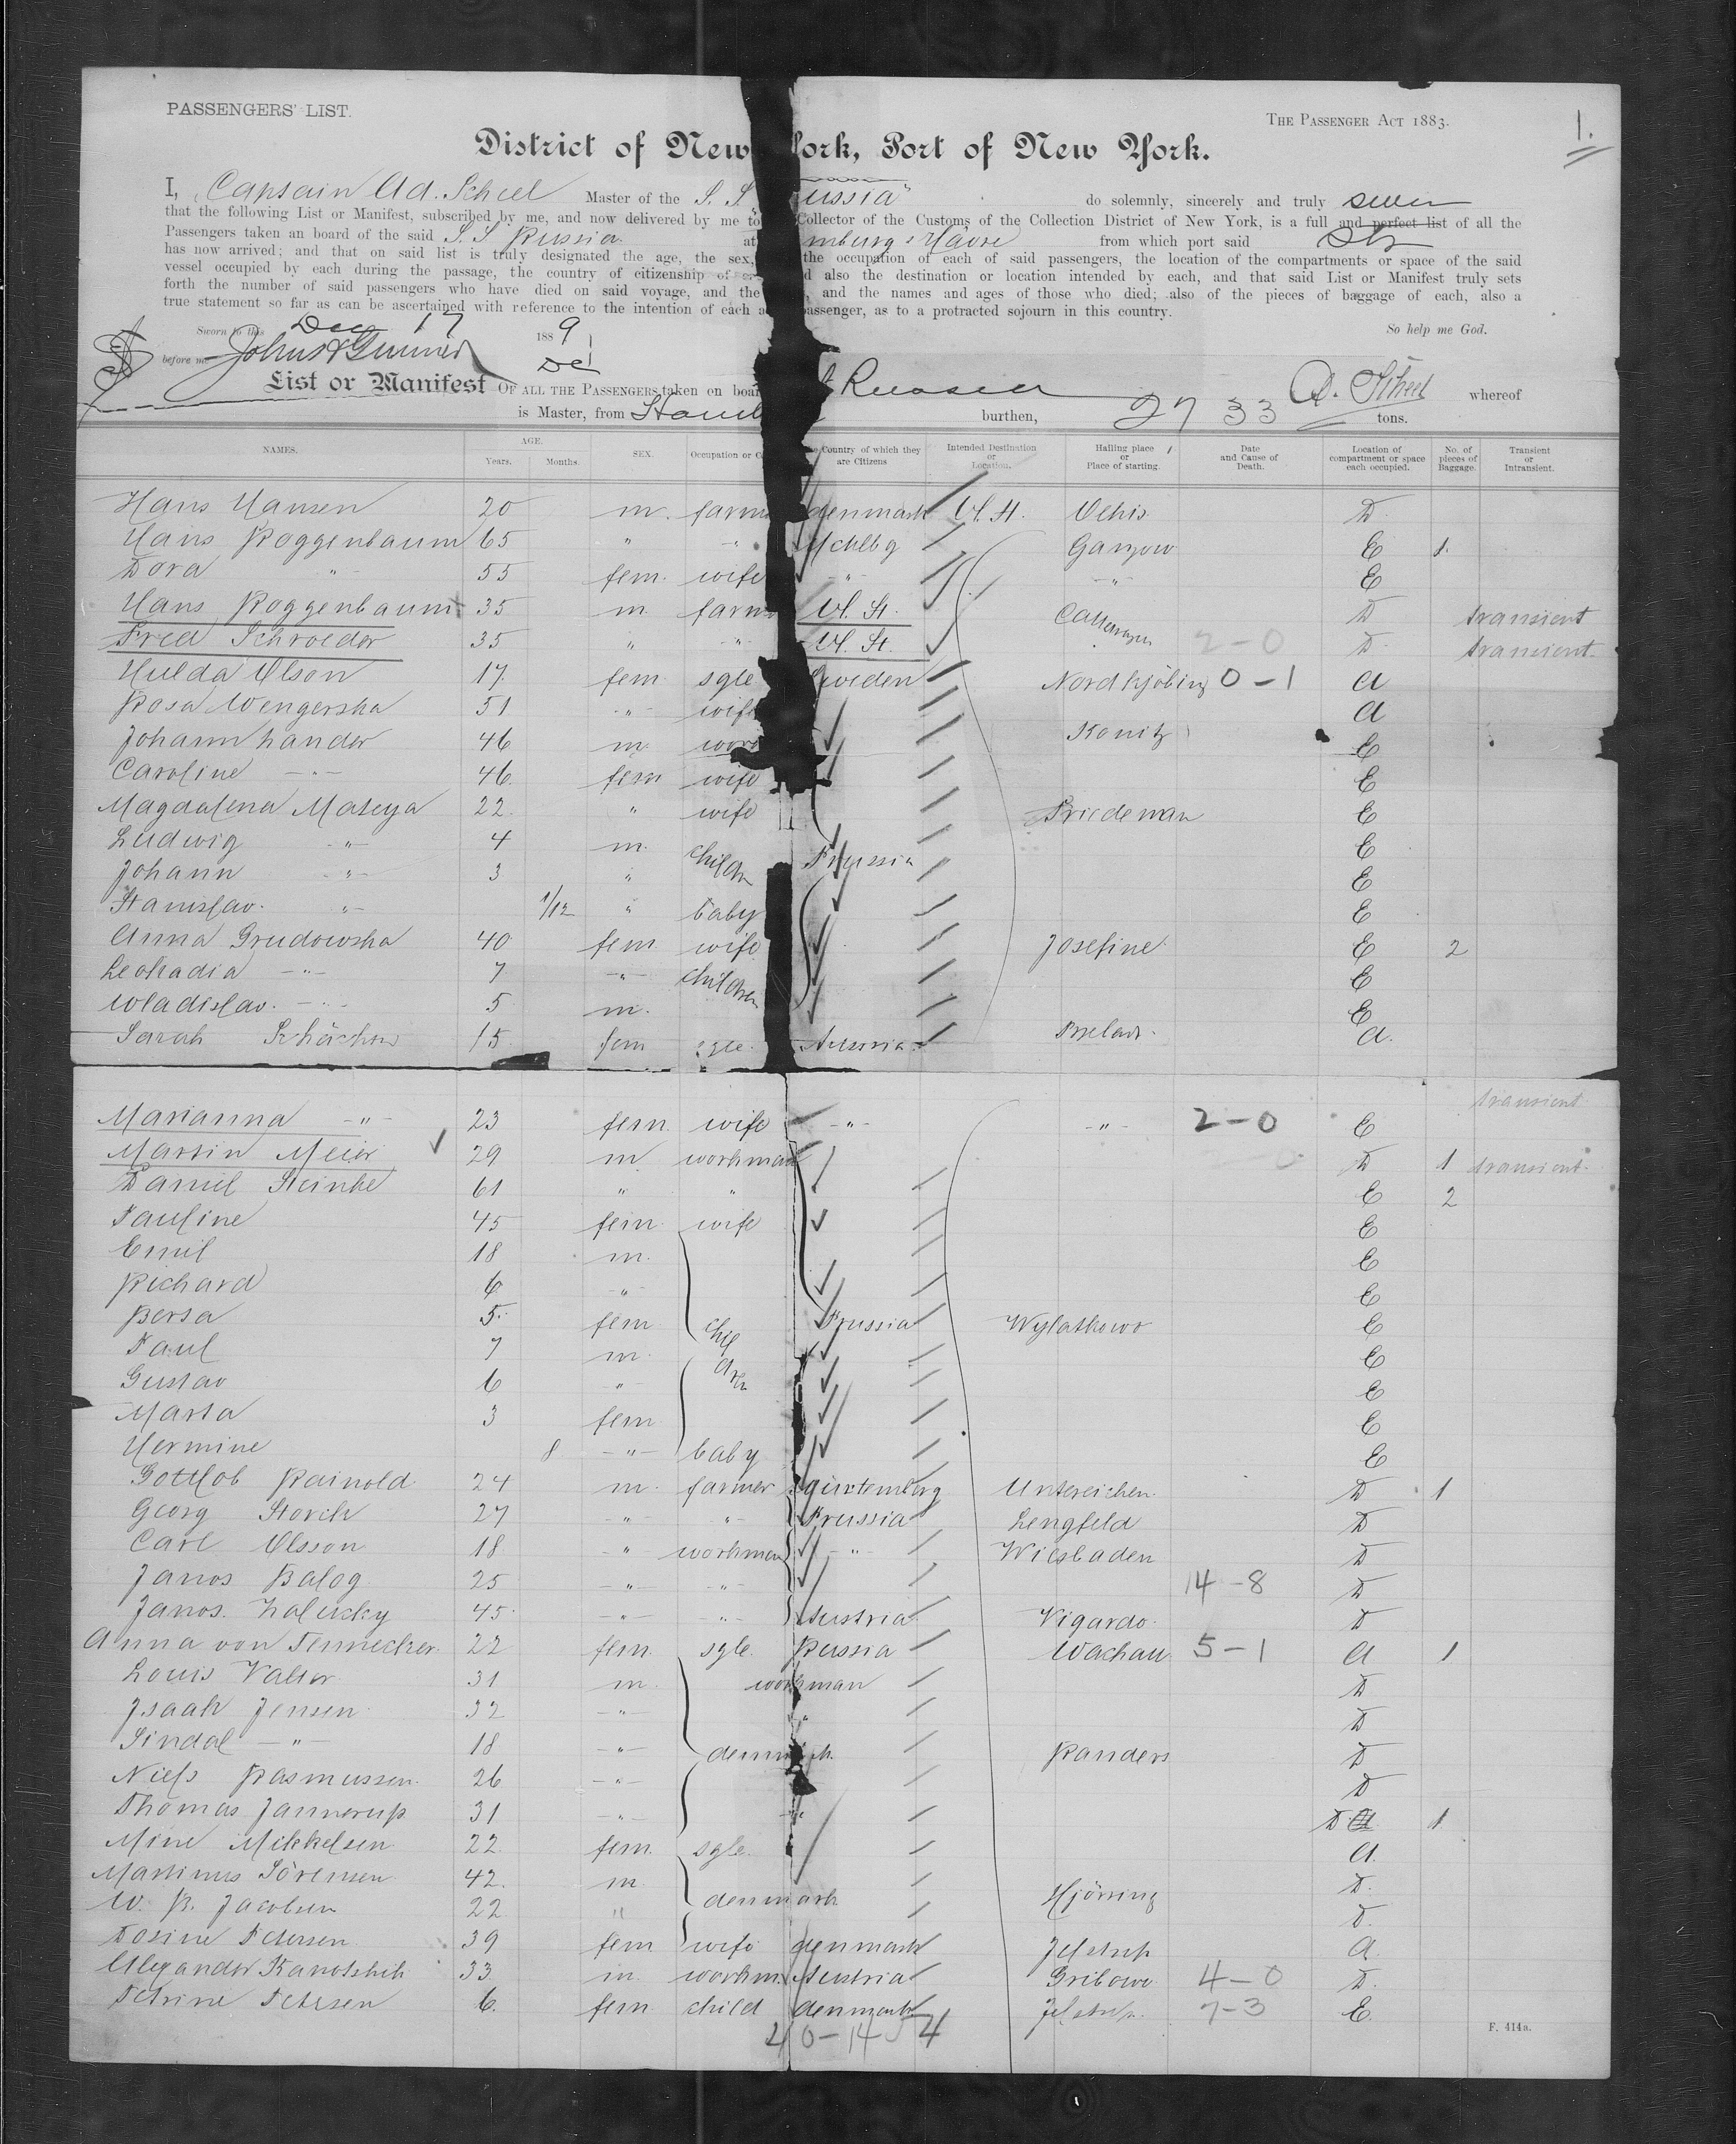 PASSENGERS' LIST.
THE PASSENGER ACT 1883.
1.
District of New York, Port of New York.
I, Captain Ad. Scheel Master of the S. S. "Russia" do solemnly, sincerely and truly swear
that the following List or Manifest, subscribed by me, and now delivered by me to Collector of the Customs of the Collection District of New York, is a full and perfect list of all the
Passengers taken an board of the said S. S Russia at mburg & Havre from which port said Str
has now arrived; and that on said list is truly designated the age, the sex, the occupation of each of said passengers, the location of the compartments or space of the said
vessel occupied by each during the passage, the country of citizenship of also the destination or location intended by each, and that said List or Manifest truly sets
forth the number of said passengers who have died on said voyage, and the , and the names and ages of those who died; also of the pieces of baggage of each, also a
true statement so far as can be ascertained with reference to the intention of each passenger, as to a protracted sojourn in this country.
Sworn to this Dec 17 1889 So help me God.
before me
List or Manifest OF ALL THE PASSENGERS taken on board Russia A. Scheel whereof
is Master, from Hamb burthen, 2733 tons.
NAMES. AGE. Years. Months. SEX. Occupation or Country of which they are Citizens Intended Destination or Location. Hailing place or Place of starting. Date and Cause of Death. Location of compartment or space each occupied. No. of pieces of Baggage. Transient or Intransient.
Hans Hansen 20 m. farm denmark U. St. D.
Hans Roggenbaum 65 " " Mcklbg Ganzow E 1.
Dora " 55 fem. wife " " E
Hans Roggenbaum 35 m farm U. St. D transient
Fred Schroeder 35 " " U. St. 2-0 D. transient
Hulda Olson 17. fem sgle Sweden Nordkjöbing 0-1 a
Rosa Wengerska 51 " wife a
Johann Lander 46 m. work Konitz E
Caroline " 46 fem wife E
Magdalena Mateya 22. " wife Friedenau E
Ludwig " 4 m. childr Prussia E
Johann " 3 " E
Stanislav. " 1/12 " baby E
Anna Grudowska 40 fem wife Josefine E 2
Leokadia " 7 " children E
Wladislav. " 5 m. E
Sarah 15 fem sgle a.
Marianna " 23 fem. wife " " 2-0 E transient
Martin Meier 29 m. workman D 1 transient.
Daniel Steinke 61 " " E 2
Pauline 45 fem wife E
Emil 18 m. E
Richard 6 " E
Berta 5. fem Prussia Wylatkowo E
Paul 7 m. children E
Gustav 6 " E
Marta 3 fem E
Hermine 8 " baby E
Gottlob Rainold 24 m. farmer Würtemberg Untereichen. D 1
Georg Storch 27 " " Prussia Lengfeld D
Carl Olsson 18 " workmen " Wiesbaden D
Janos Balog 25 " " 14-8 D
Janos. 45 " " Austria Vigardo. D
Anna von Tennecker 22 fem. sgle. Russia Wachau 5-1 a 1
Louis Valter 31 m. workman D
Isaak Jensen 32 " " D
Sindal " 18 " denmark. Randers D
Niels Rasmussen. 26 " D
Thomas Jannerup 31 " " D 1
Mine Mikkelsen 22 fem. sgle. a.
Martinus Sörensen 42. m. D.
W. R. Jacobsen 22 " denmark Hjörring D.
Dosine Petersen 39 fem wife denmark Jelstrup a.
Alexander 33 m. workm. Austria Gribowo 4-0 D.
Petrine Petersen 6. fem child denmark Jelstrup 7-3 E.
F. 414a.